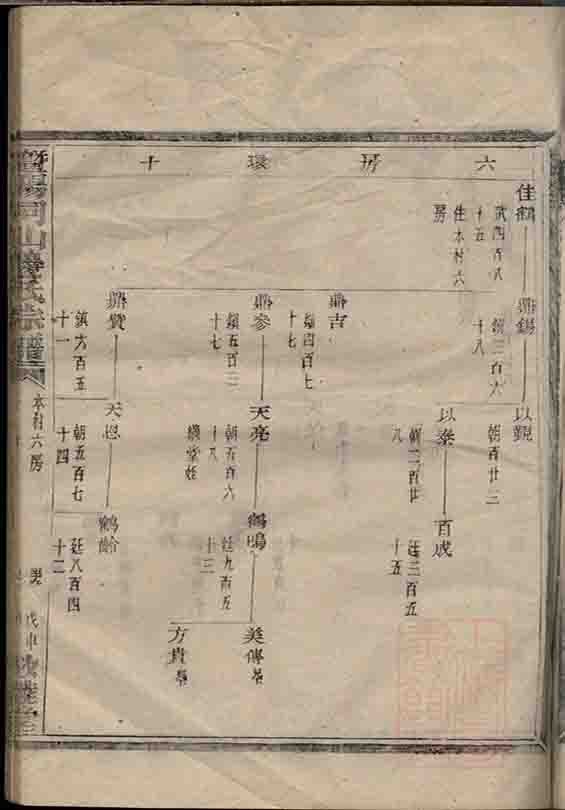 六房環十
佳鶴
武四百八
十五
住木村六
房
鼎錫
鎮三百六
十八
以覲
朝百廿三
以泰
朝二百廿
八
百成
廷三百五
十五
鼎吉
鎮四百七
十七
鼎參
鎮五百三
十七
天亮
朝五百六
十八
繼堂姪
鶴鳴
廷九百五
十三
美傳
方貴
鼎贊
鎮六百五
十一
天恩
朝五百七
十四
鶴齡
廷八百四
十二
山 氏宗譜
本村六房
戊申